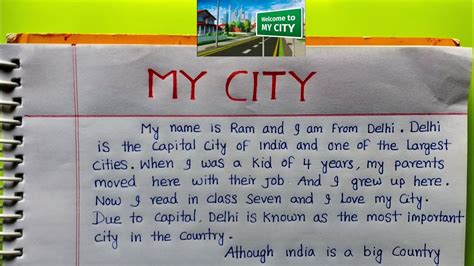 Welcome to
MY CITY
MY CITY
My name is Ram and I am from Delhi. Delhi
is the Capital City of India and one of the Largest
Cities. When I was a Kid of 4 years, my parents
moved here with their job And I grew up here.
Now I read in class Seven and I Love my City.
Due to Capital, Delhi is Known as the most important
city in the Country.
Athough india is a big Country